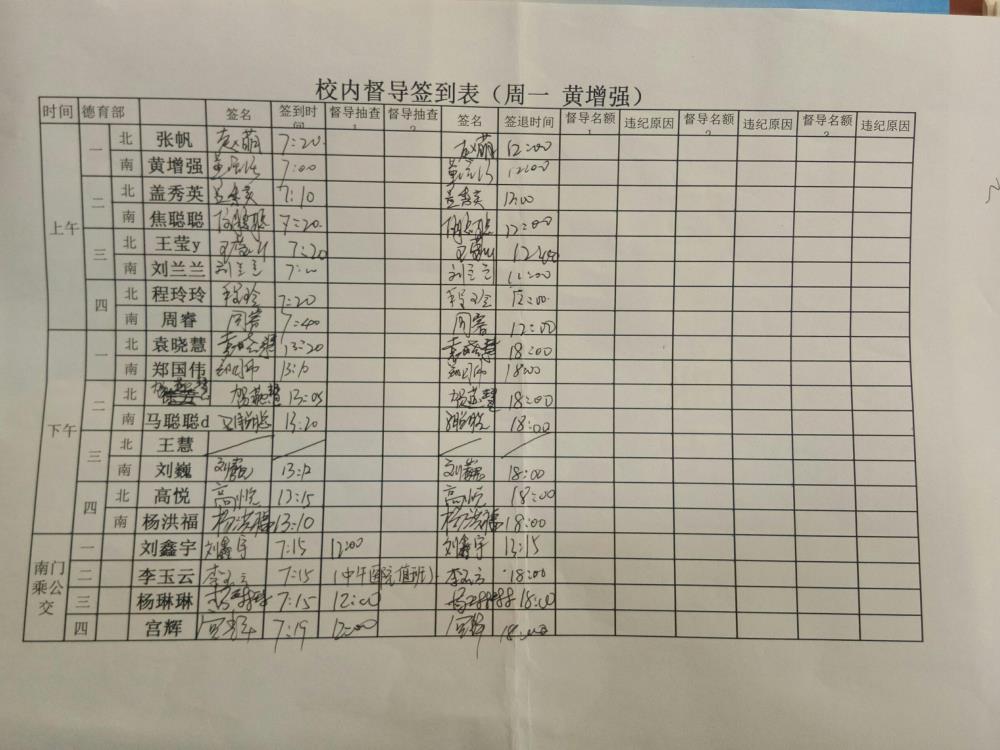 校内督导签到表（周一 黄增强）
时间 德育部 签名 签到时间 督导抽查1 督导抽查2 签名 签退时间 督导名额1 违纪原因 督导名额2 违纪原因 督导名额3 违纪原因
上午 一 北 张帆 赵萌 7:20 赵萌 12:00
南 黄增强 7:00 12:00
二 北 盖秀英 盖秀英 7:10 盖秀英 12:00
南 焦聪聪 焦聪聪 7:20 焦聪聪 12:00
三 北 王莹y 王莹y 7:20 王莹y 12:00
南 刘兰兰 刘兰兰 刘兰兰
四 北 程玲玲 程玲玲 7:20 程玲玲 12:00
南 周睿 周睿 7:40 周睿 12:00
下午 一 北 袁晓慧 袁晓慧 13:20 袁晓慧 18:00
南 郑国伟 郑国伟 13:10 郑国伟 18:00
二 北 13:05 18:00
南 马聪聪d 马聪聪 13:20 马聪聪 18:00
三 北 王慧
南 刘巍 刘巍 刘巍 18:00
四 北 高悦 高悦 13:15 高悦 18:00
南 杨洪福 杨洪福 13:10 杨洪福 18:00
南门乘公交 一 刘鑫宇 刘鑫宇 7:15 12:00 刘鑫宇 13:15
二 李玉云 李玉云 7:15 李玉云 18:00
三 杨琳琳 杨琳琳 7:15 12:00 杨琳琳 18:00
四 宫辉 宫辉 7:19 12:00 宫辉 18:00